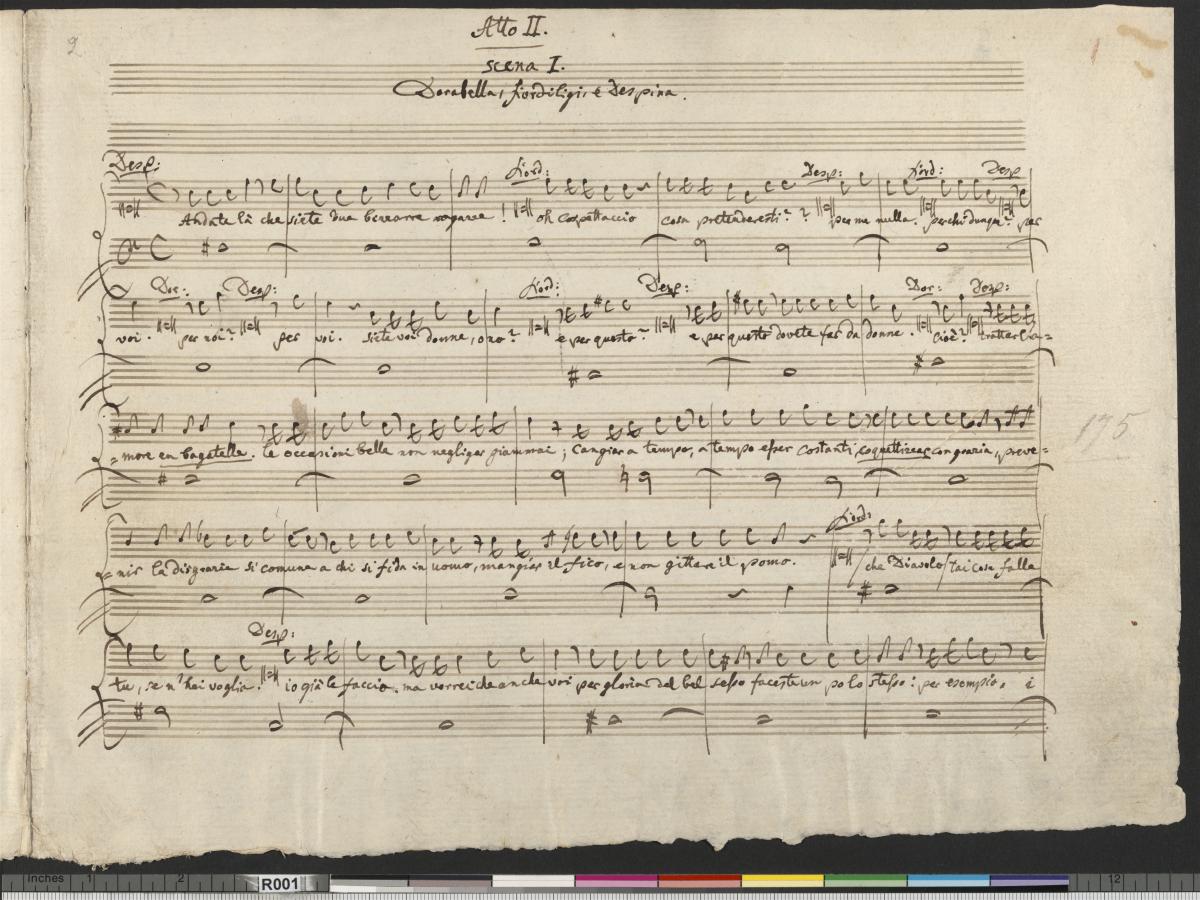 2
Atto II.
scena I.
Dorabella, fiordiligi, e Despina.
Desp: Fiord: Desp: Fiord: Desp
Andate là che siete due bezzarre ragazze! oh cospettaccio cosa pretendereste? ? per me nulla. perchi dunque? per
Dor: Desp: Fiord: Desp: Dor: Desp:
voi. per noi? per voi. siete voi donne, o no? e per questo? e per questo dovete far da donne. cioè? trattar l'a=
=more en bagatelle. le occasioni belle non negliger giammai; cangiar a tempo, a tempo esser costanti, coquettizear con grazia, preve=
Fiord:
=nir la disgrazia si comune a chi si fida in uomo, mangiar il fico, e non gittare il pomo. /che Diavolo/ tai cose falle
Desp:
tu, se n'hai voglia. io già le faccio. ma vorrei che anche voi per gloria del bel sesso faceste un po lo stesso: per esempio, i
175
inches 1 2 R001 12